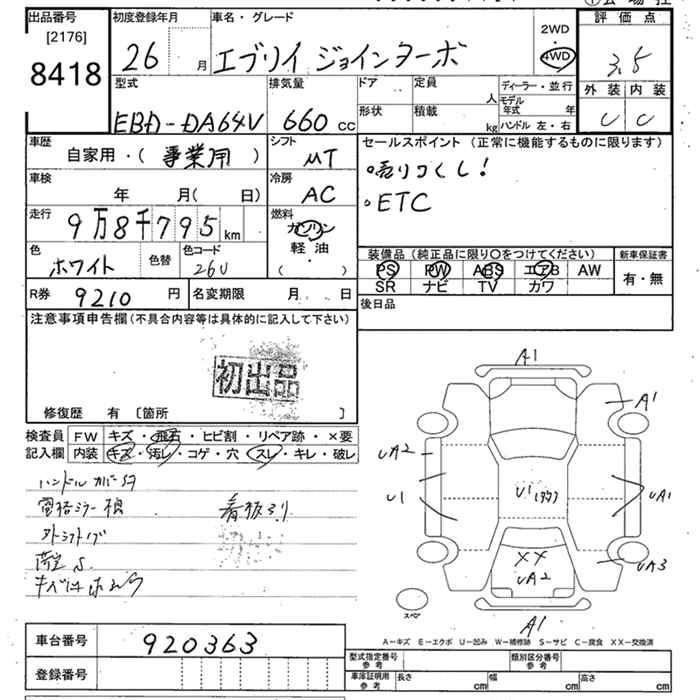 出品番号
[2176]
8418
初度登録年月
26 月
車名・グレード
エブリイ ジョインターボ
2WD
・
4WD
評価点
3.5
外装 内装
C C
型式
EBD-DA64V
排気量
660 cc
ドア
定員
人
形状
積載
kg
ディーラー・並行
モデル年式 年
ハンドル 左・右
車歴
自家用・( 事業用 )
シフト
MT
セールスポイント(正常に機能するものに限ります)
◦売りつくし!
◦ETC
車検
年 月( 日)
冷房
AC
走行
9万8千795 km
燃料
ガソリン
軽・油
・
( )
色
ホワイト
色替
色コード
26U
装備品(純正品に限り○をつけてください)
PS PW ABS エアB AW
SR ナビ TV カワ
新車保証書
有・無
R券
9210 円
名変期限 月 日
後日品
注意事項申告欄(不具合内容等は具体的に記入して下さい)
初出品
修復歴 有 〔箇所 〕
検査員
記入欄
FW キズ・飛石・ヒビ割・リペア跡・×要
内装 キズ・汚レ・コゲ・穴・スレ・キレ・破レ
ハンドル カバー
電格ミラー
看板
A1
A1
UA2
U1
U1
UA1
XX
UA2
UA3
スペア
A1
A-キズ E-エクボ U-凹ミ W-補修跡 S-サビ C-腐食 XX-交換済
車台番号
920363
登録番号
型式指定番号
参考
類別区分番号
参考
車庫証明用
参考
長さ cm
幅 cm
高さ cm